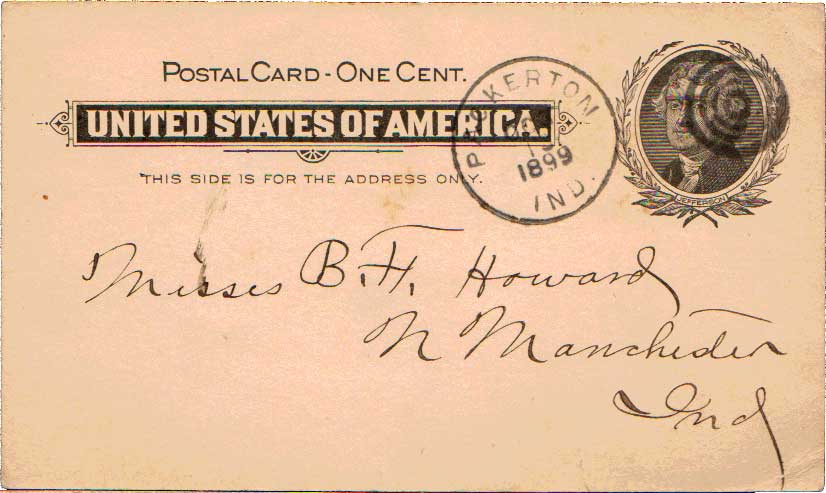 POSTAL CARD - ONE CENT.
UNITED STATES OF AMERICA.
THIS SIDE IS FOR THE ADDRESS ONLY.
PACKERTON
1899
IND.
JEFFERSON
Misses B. H. Howard
N Manchester
Ind